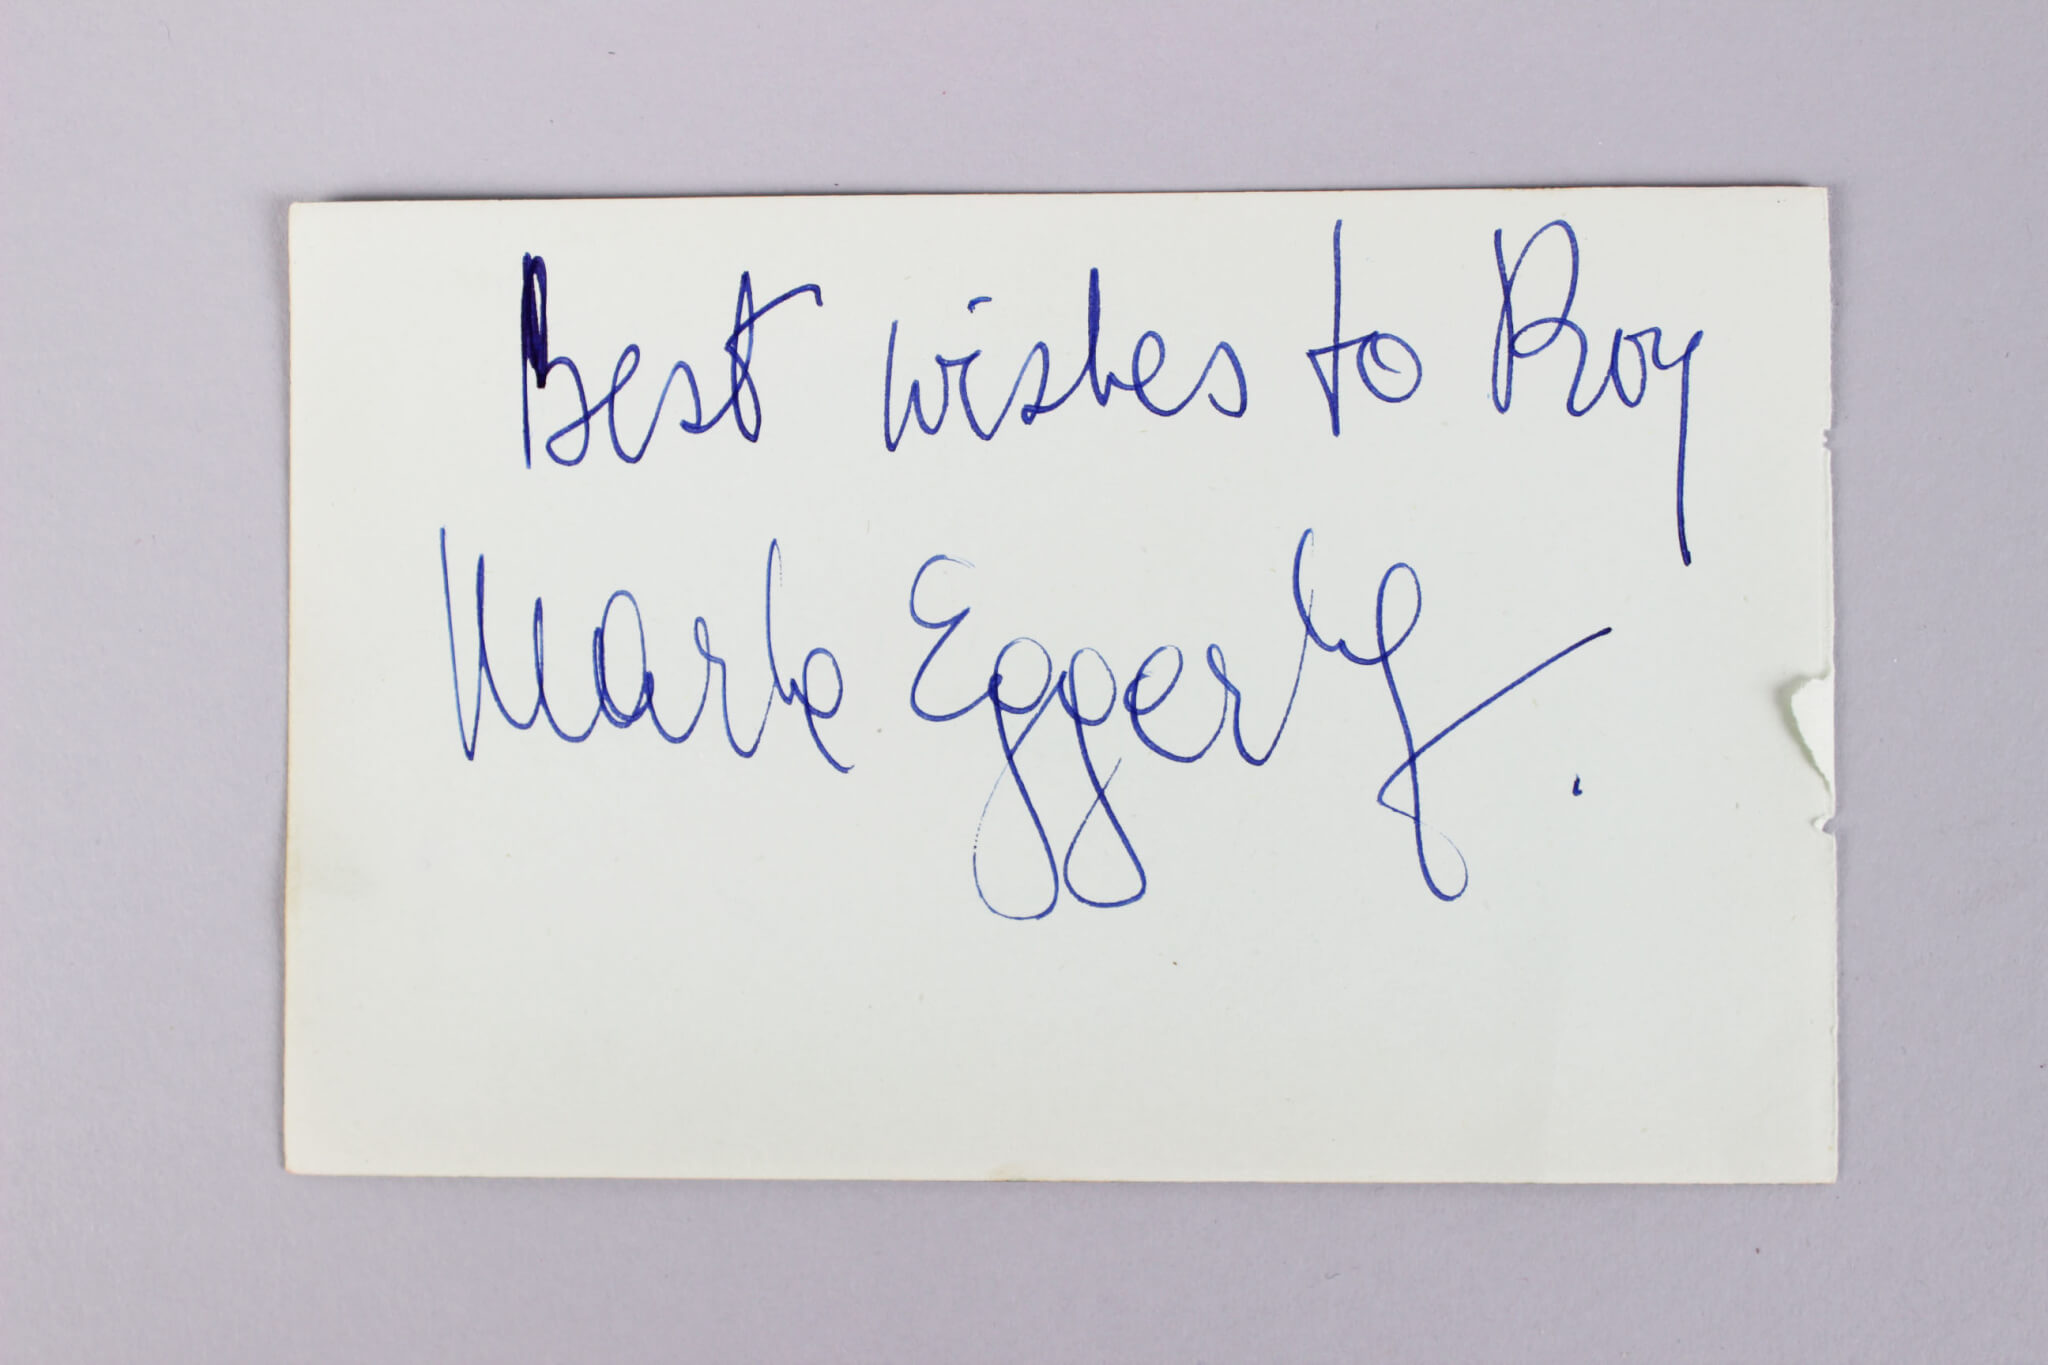 Best wishes to Roy
Marta Eggerth